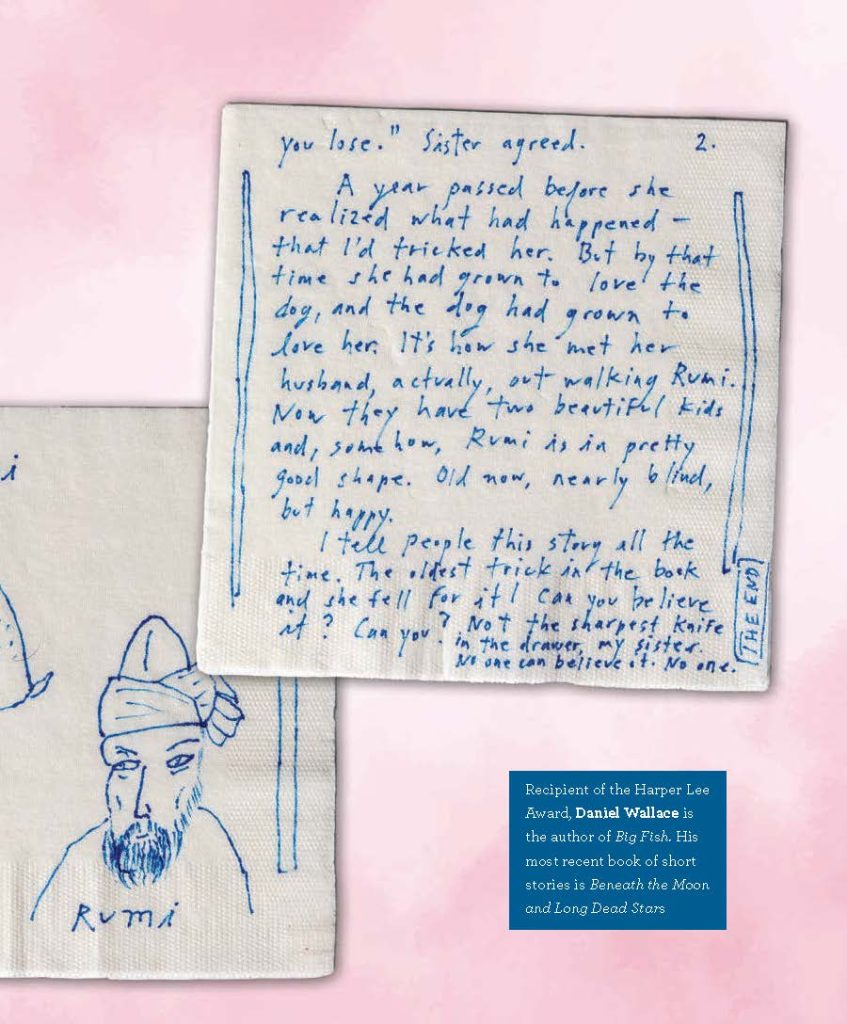 you lose." Sister agreed. 2.
A year passed before she
realized what had happened —
that I'd tricked her. But by that
time she had grown to love the
dog, and the dog had grown to
love her. It's how she met her
husband, actually, out walking Rumi.
Now they have two beautiful kids
and, somehow, Rumi is in pretty
good shape. Old now, nearly blind,
but happy.
I tell people this story all the
time. The oldest trick in the book
and she fell for it! Can you believe
it? Can you? Not the sharpest knife
in the drawer, my sister.
No one can believe it. No one.
THE END
i
Rumi
Recipient of the Harper Lee
Award, Daniel Wallace is
the author of Big Fish. His
most recent book of short
stories is Beneath the Moon
and Long Dead Stars